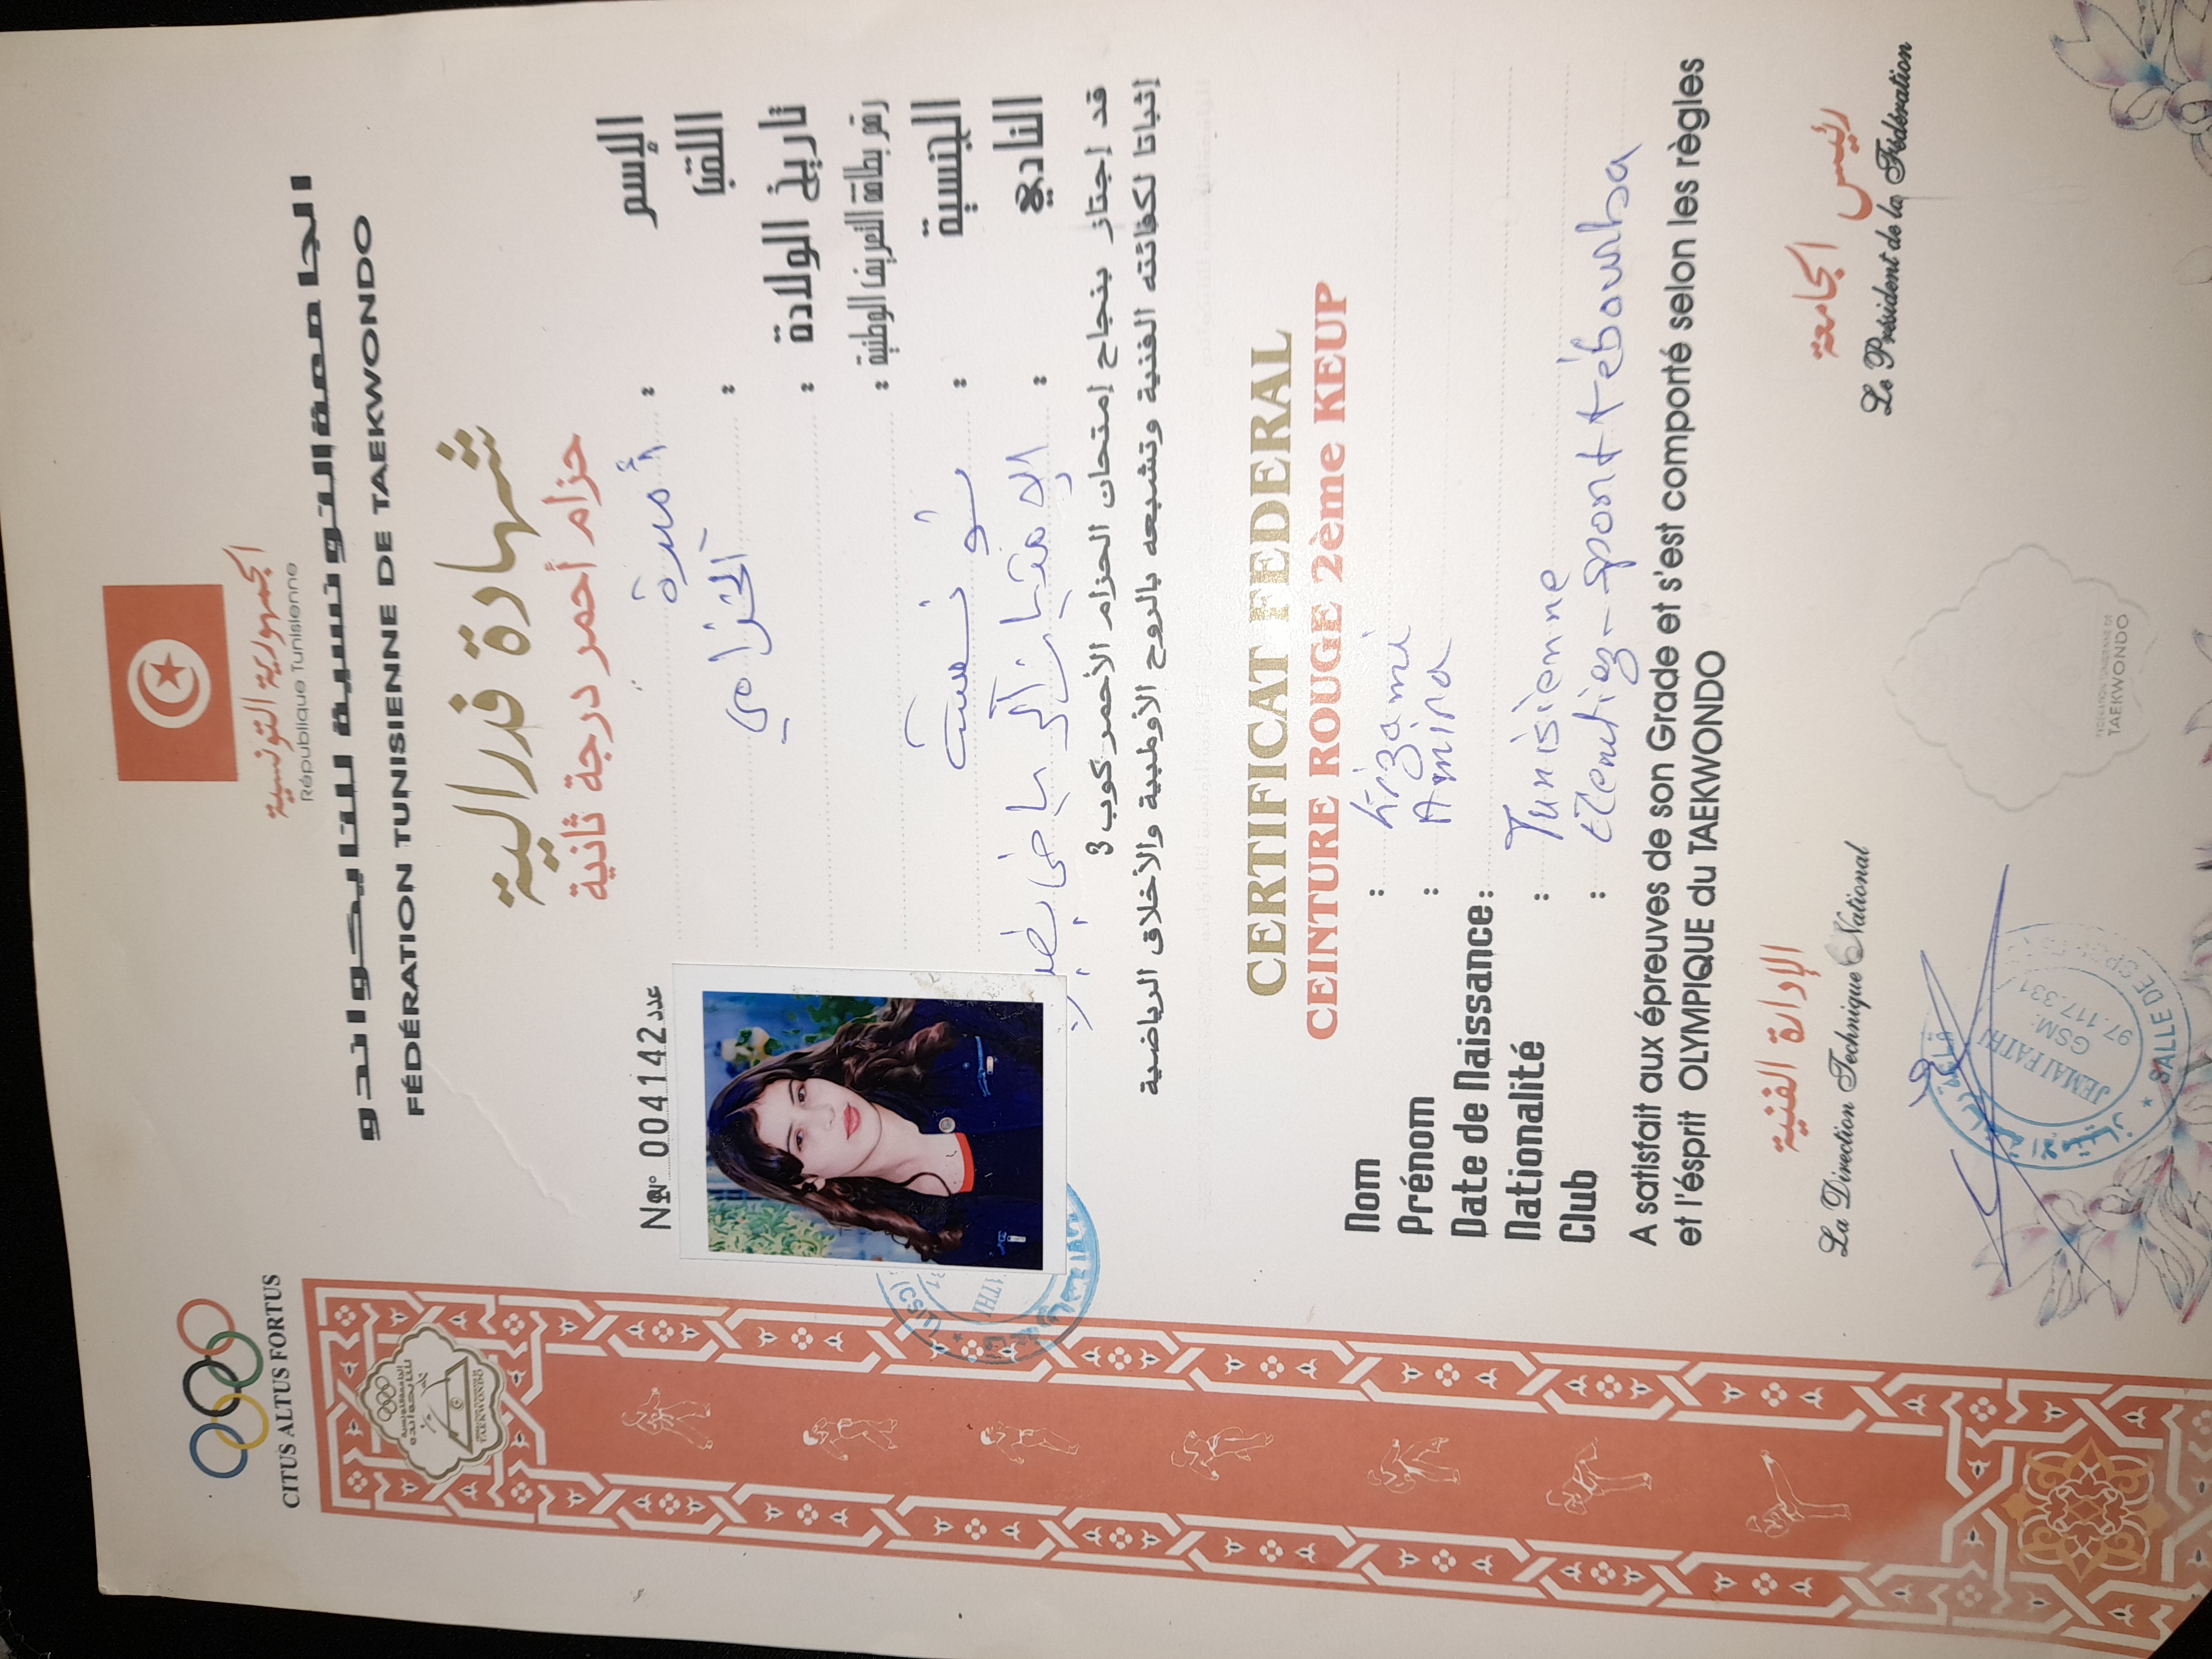 CITUS ALTUS FORTUS
الجمهورية التونسية
République Tunisienne
الجامعة التونسية للتايكواندو
FÉDÉRATION TUNISIENNE DE TAEKWONDO
شهادة فدرالية
حزام أحمر درجة ثانية
N° 004142 عدد
الإسم : أميرة
اللقب : الخزامي
تاريخ الولادة :
رقم بطاقة التعريف الوطنية :
الجنسية : تونسية
النادي : الإمتياز الرياضي بطبربة
قد إجتاز بنجاح إمتحان الحزام الأحمر كوب 3
إثباتا لكفائته الفنية وتشبعه بالروح الأولمبية والأخلاق الرياضية
CERTIFICAT FEDERAL
CEINTURE ROUGE 2ème KEUP
Nom : khzami
Prénom : Amira
Date de Naissance :
Nationalité : Tunisienne
Club : sport tébourba
A satisfait aux épreuves de son Grade et s'est comporté selon les règles
et l'ésprit OLYMPIQUE du TAEKWONDO
الإدارة الفنية
La Direction Technique National
رئيس الجامعة
Le Président de la Fédération
JEMAI FATHI
GSM:
97.117.331
SALLE DE
FÉDÉRATION TUNISIENNE DE
TAEKWONDO